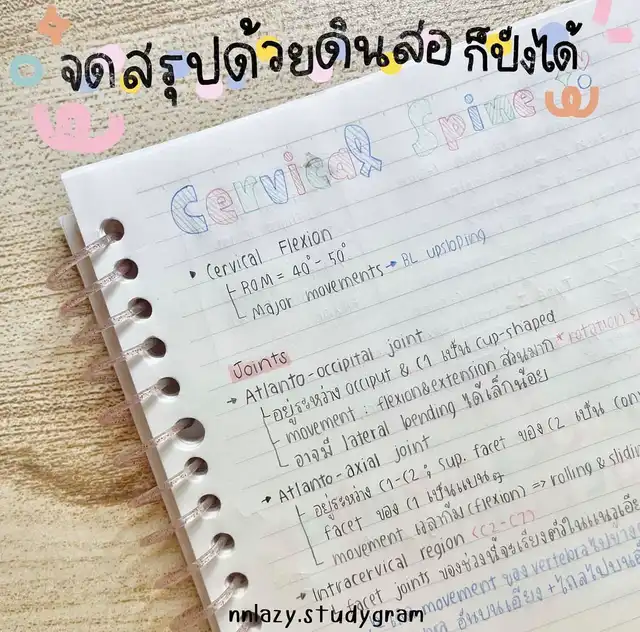 จดสรุปด้วยดินสอ ก็ปังได้
Cervical Spine
▸ Cervical Flexion
ROM = 40° - 50°
Major movements → BL upsloping
Joints
→ Atlanto - occipital joint
อยู่ระหว่าง occiput & C1 เป็น cup-shaped
movement : flexion&extension ส่วนมาก * rotation
อาจมี lateral bending ได้เล็กน้อย
→ Atlanto - axial joint
อยู่ระหว่าง C1-C2 ; sup. facet ของ C2 เป็น
facet ของ C1 เป็นแบนๆ
movement (flexion) => rolling &
Intracervical region (C2-C7)
facet joints
movement ของ vertebra
nnlazy.studygram